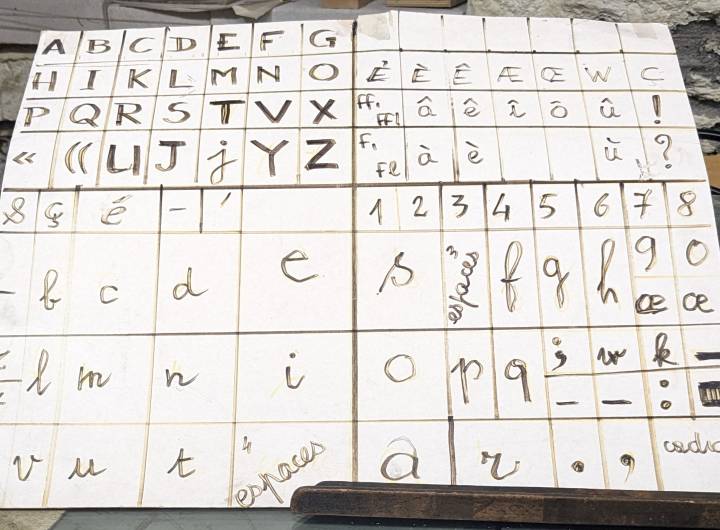 A B C D E F G
H I K L M N O É È Ê Æ Œ W Ç
P Q R S T V X ff. ffl â ê î ô û !
« (( U J j Y Z f. fl à è ù ?
& ç é - ' 1 2 3 4 5 6 7 8
b c d e s 3 espaces f g h 9 0
œ æ
l m n i o p q ; w k —
— — :
v u t 4 espaces a r . ,